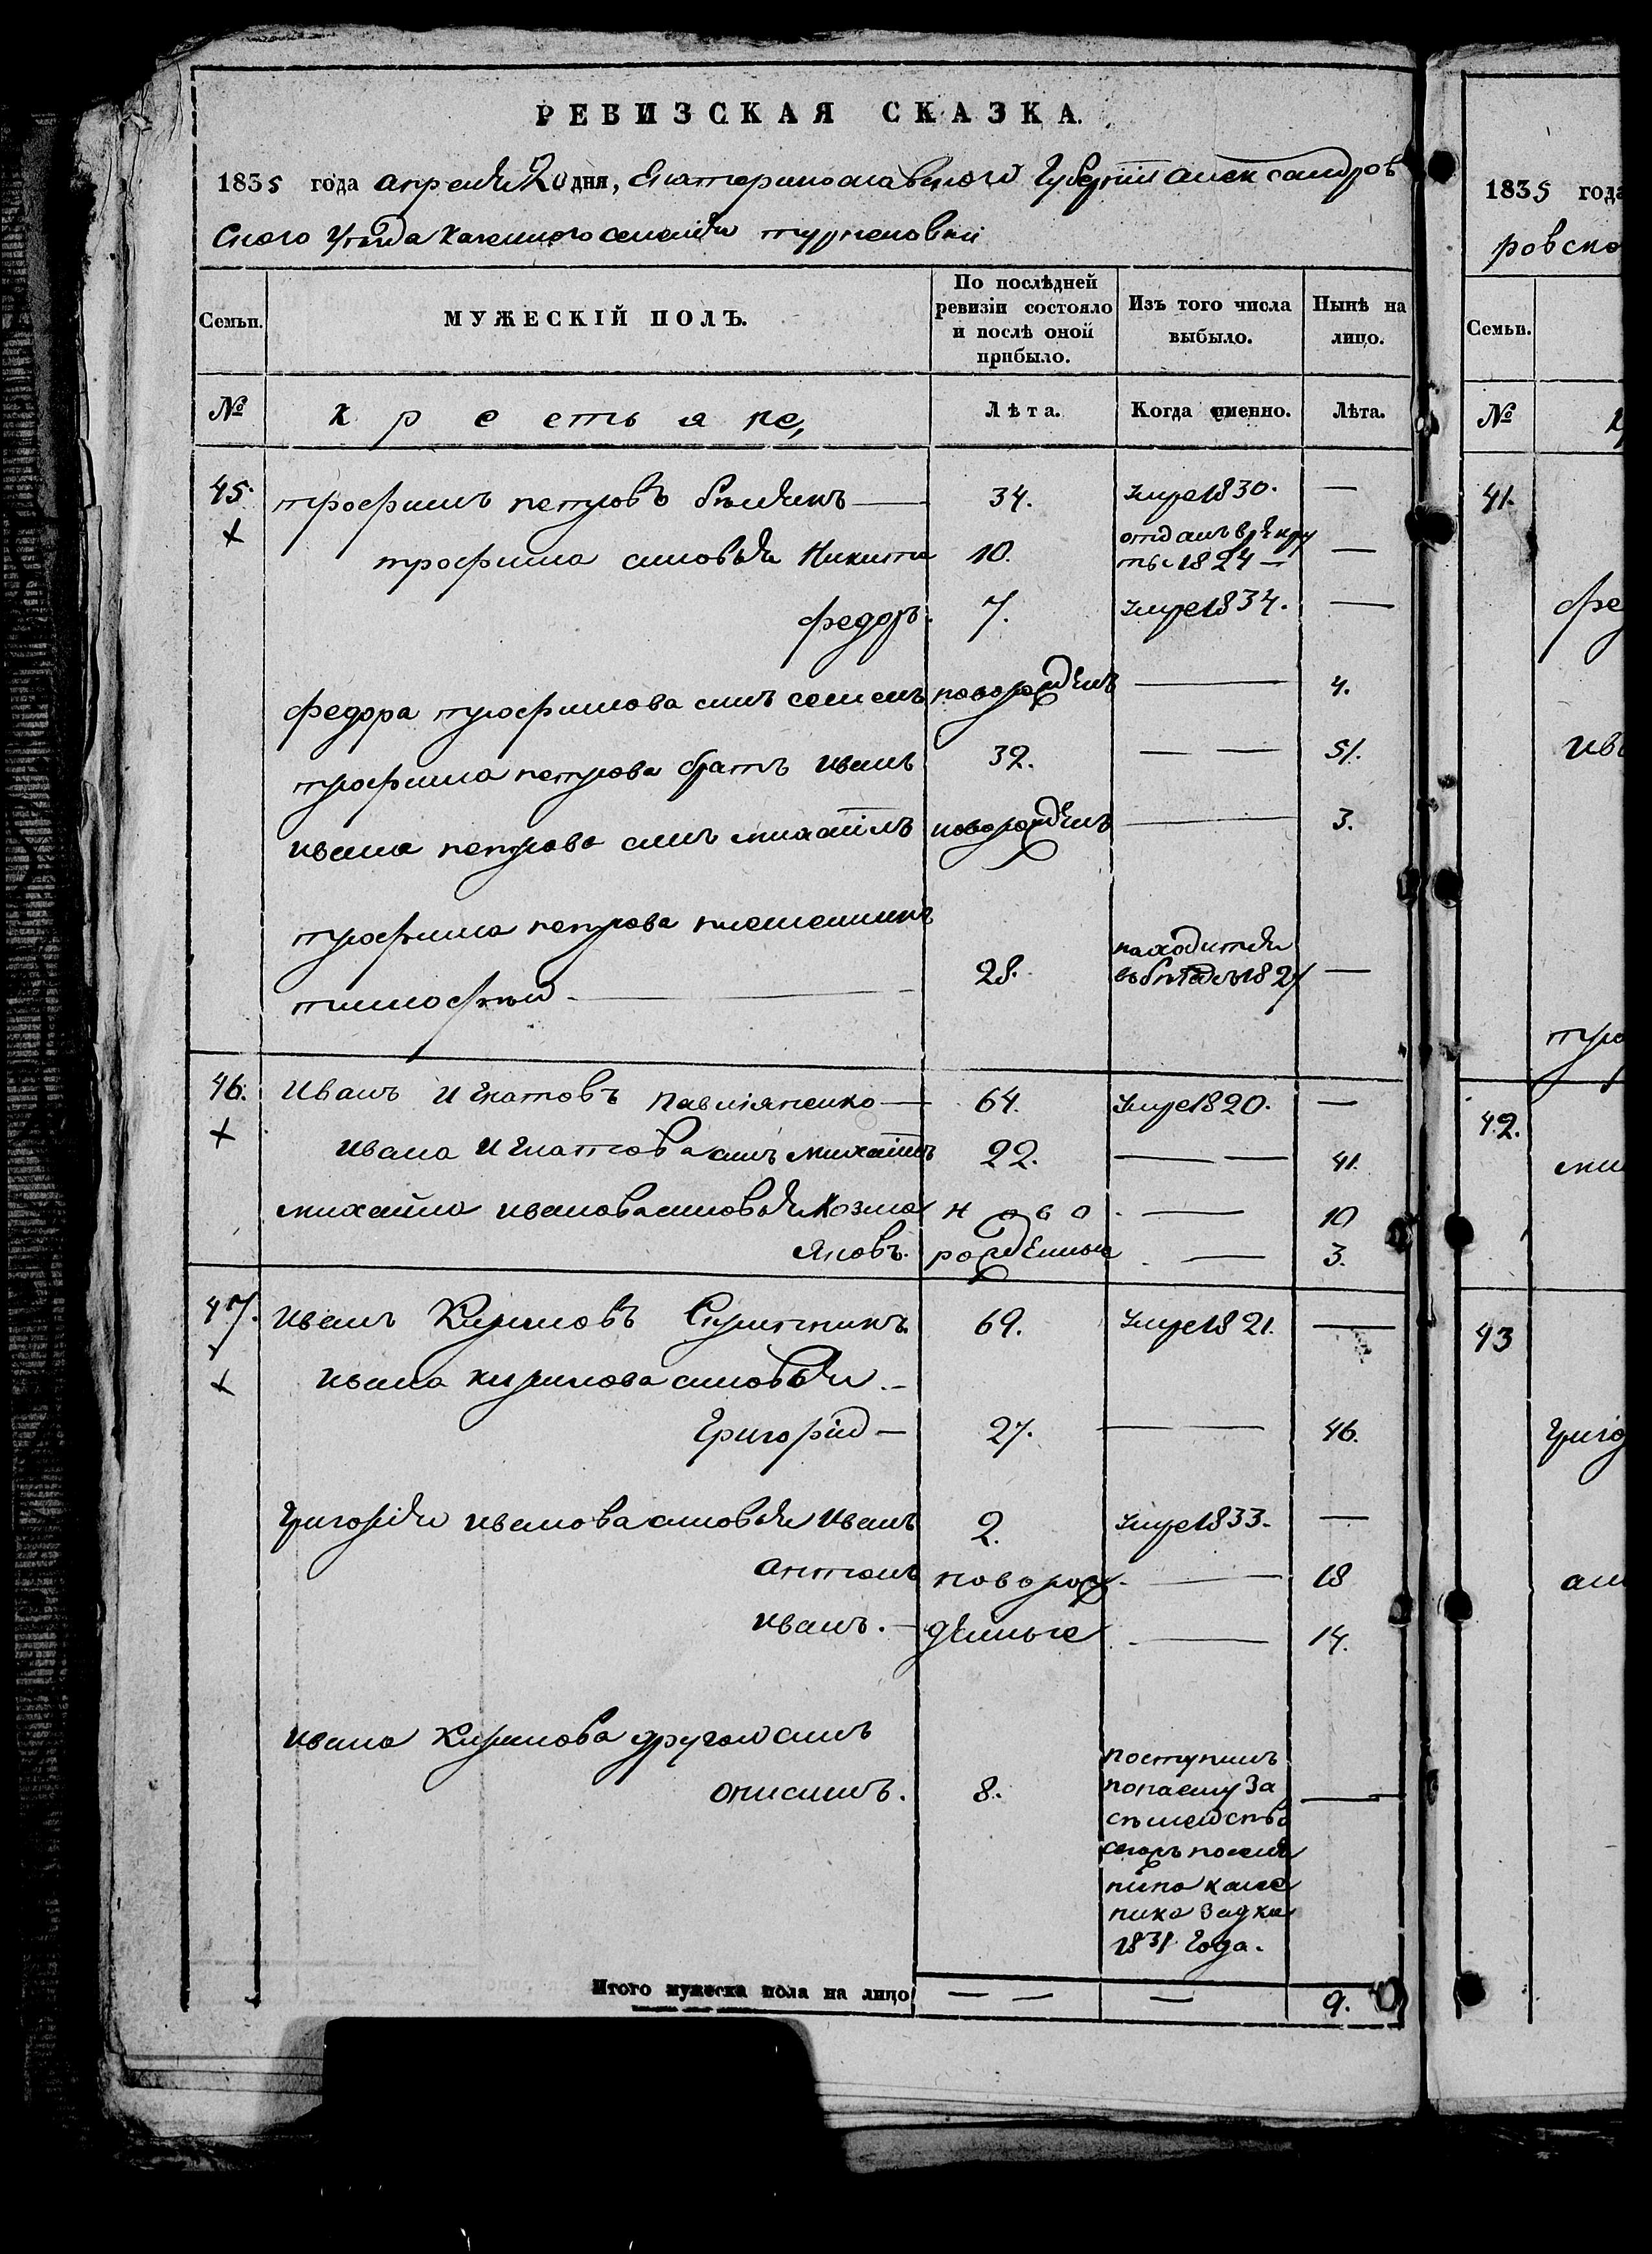 РЕВИЗСКАЯ СКАЗКА.
1835 года апреля 20 дня, Екатеринославской Губернiи Александров
ского Уезда Казенного селенiя Туркеновки
Семьи.
МУЖЕСКІЙ ПОЛЪ.
По послѣдней ревизіи состояло и послѣ оной прибыло.
Изъ того числа выбыло.
Нынѣ на лицо.
№
крестьяне,
Лѣта.
Когда именно.
Лѣта.
45. трофимъ петровъ 34. умре 1830. —
трофима сыновья Никита 10. отданъ в рекруты 1824 —
федоръ. 7. умре 1834. —
федора трофимова сынъ семенъ новорожденъ — 4.
трофима петрова братъ иванъ 32. — 51.
ивана петрова сынъ михаилъ новорожденъ — 3.
трофима петрова племенникъ
тимофей — 28. находится въ бегахъ 1827 —
46. Иванъ Игнатовъ Павлiяненко — 64. умре 1820. —
ивана Игнатова сынъ михаилъ 22. — 41.
михаила иванова сыновья Козма ново — 10
яковъ. рожденные — 3.
47. иванъ Кириловъ 69. умре 1821. —
ивана кирилова сыновья —
Григорiй — 27. — 46.
Григорiя иванова сыновья иванъ 2. умре 1833. —
антонъ новорож — 18
иванъ. — денные — 14.
ивана Кирилова другой сынъ
онисимъ. 8. поступилъ
по найму за
1831 года. —
Итого мужеска пола на лицо — — — 9.
1835 года
ровско
Семьи.
№
41.
фе
ив
тро
42.
ми
43
григо